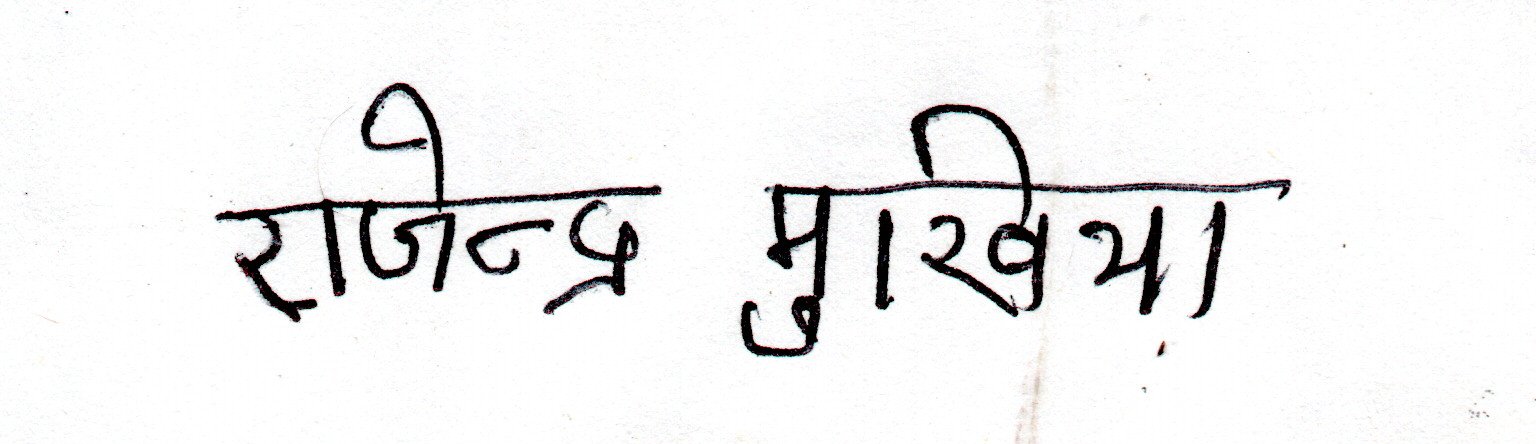 राजेन्द्र मुखिया